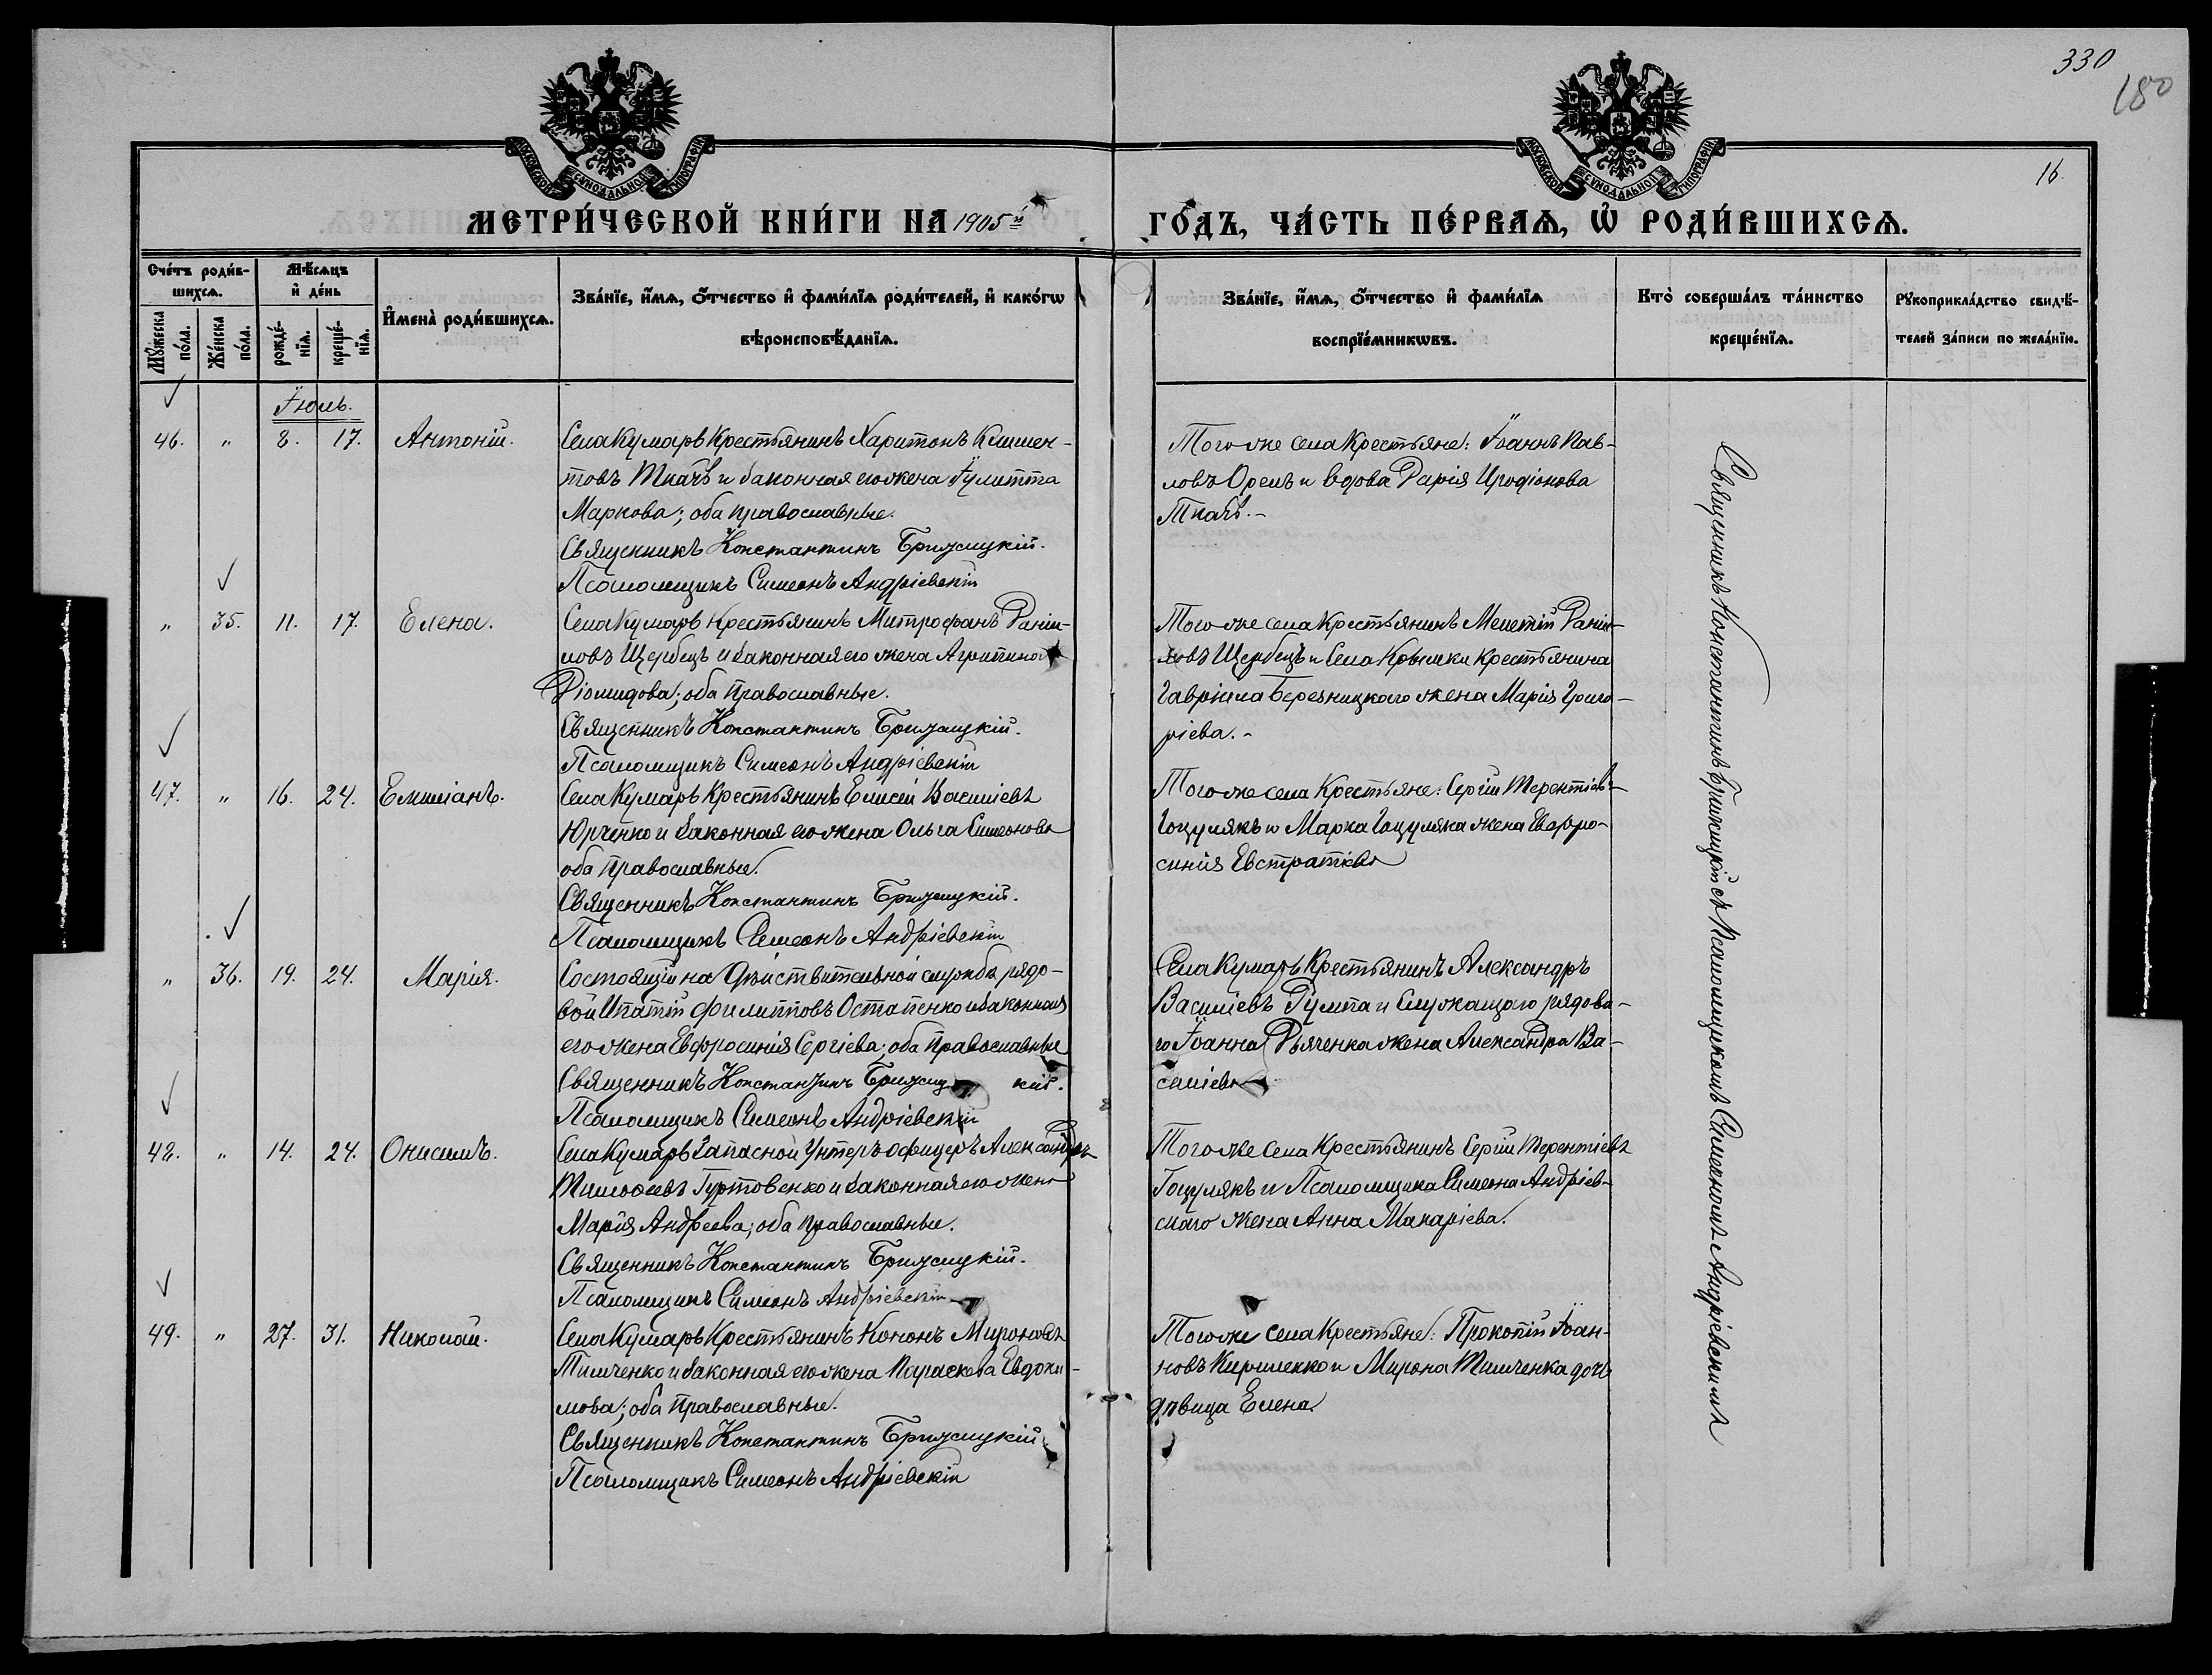 330
180
16.
МОСКОВСКОЙ СѴНОДАЛЬНОЙ ТИПОГРАФІИ
МОСКОВСКОЙ СѴНОДАЛЬНОЙ ТИПОГРАФІИ
МЕТРИ́ЧЕСКОЙ КНИ́ГИ НА 1905й ГО́ДЪ, ЧА́СТЬ ПЕ́РВАѦ, Ѡ҆ РОДИ́ВШИХСѦ.
Сче́тъ роди́в-
шихсѧ.
Мꙋ́жеска по́ла.
Же́нска по́ла.
Мѣ́сѧцъ
и҆ де́нь
рожде́-
нїѧ.
креще́-
нїѧ.
И҆мена̀ роди́вшихсѧ.
Зва́нїе, и҆́мѧ, ѻ҆́тчество и҆ фами́лїѧ роди́телей, и҆ како́гѡ
вѣроисповѣ́данїѧ.
Зва́нїе, и҆́мѧ, ѻ҆́тчество и҆ фами́лїѧ
воспрїе́мникѡвъ.
Кто̀ соверша́лъ та́инство
креще́нїѧ.
Рꙋкоприкла́дство свидѣ́-
телей за́писи по жела́нїю.
Іюль.
46. " 8. 17. Антоній.
Села Кумаръ Крестьянинъ Харитонъ Климен-
товъ Ткачъ и законная его жена Іулитта
Маркова; оба православные.
Священникъ Константинъ Брижицкій.
Псаломщикъ Симеонъ Андріевскій
Того же села Крестьяне: Іоаннъ Пав-
ловъ Орелъ и вдова Дарія Иродіонова
Ткачъ.-
" 35. 11. 17. Елена.
Села Кумаръ Крестьянинъ Митрофанъ Даніи-
ловъ Щербецъ и законная его жена Агрипина
Діомидова; оба православные.
Священникъ Константинъ Брижицкій.
Псаломщикъ Симеонъ Андріевскій
Того же села Крестьянинъ Мелетій Даніи-
ловъ Щербецъ и Села Крымки Крестьянина
Гавріила Березницкаго жена Марія Григо-
ріева.-
47. " 16. 24. Емиліанъ.
Села Кумаръ Крестьянинъ Елисей Васильевъ
Юрченко и законная его жена Ольга Симеонова
оба православные.
Священникъ Константинъ Брижицкій.
Псаломщикъ Симеонъ Андріевскій
Того же села Крестьяне: Сергій Терентіевъ
Гоцулякъ и Марка Гоцуляка жена Евфро-
синія Евстратіева
" 36. 19. 24. Марія.
Состоящій на дѣйствительной службѣ рядо-
вой Ипатій Филипповъ Остапенко и законная
его жена Евфросинія Сергіева; оба православные
Священникъ Константинъ Брижицкій.
Псаломщикъ Симеонъ Андріевскій
Села Кумаръ Крестьянинъ Александръ
Василіевъ и Служащаго рядова-
го Іоанна Дьяченка жена Александра Ва-
силіева
48. " 14. 24. Онисимъ.
Села Кумаръ Запасной Унтеръ офицеръ Александръ
Тимофеевъ Гуртовенко и законная его жена
Марія Андреева; оба православные.
Священникъ Константинъ Брижицкій.
Псаломщикъ Симеонъ Андріевскій
Того же села Крестьянинъ Сергій Терентіевъ
Гоцулякъ и Псаломщика Симеона Андріев-
скаго жена Анна Макаріева.
49. " 27. 31. Николай.
Села Кумаръ Крестьянинъ Кононъ Мироновъ
Тимченко и законная его жена Параскева Евдоки-
мова; оба православные.
Священникъ Константинъ Брижицкій
Псаломщикъ Симеонъ Андріевскій
Того же села Крестьяне: Прокопій Іоан-
новъ Кириленко и Мирона Тимченка дочь
дѣвица Елена
Священникъ Константинъ Брижицкій съ Псаломщикомъ Симеономъ Андріевскимъ